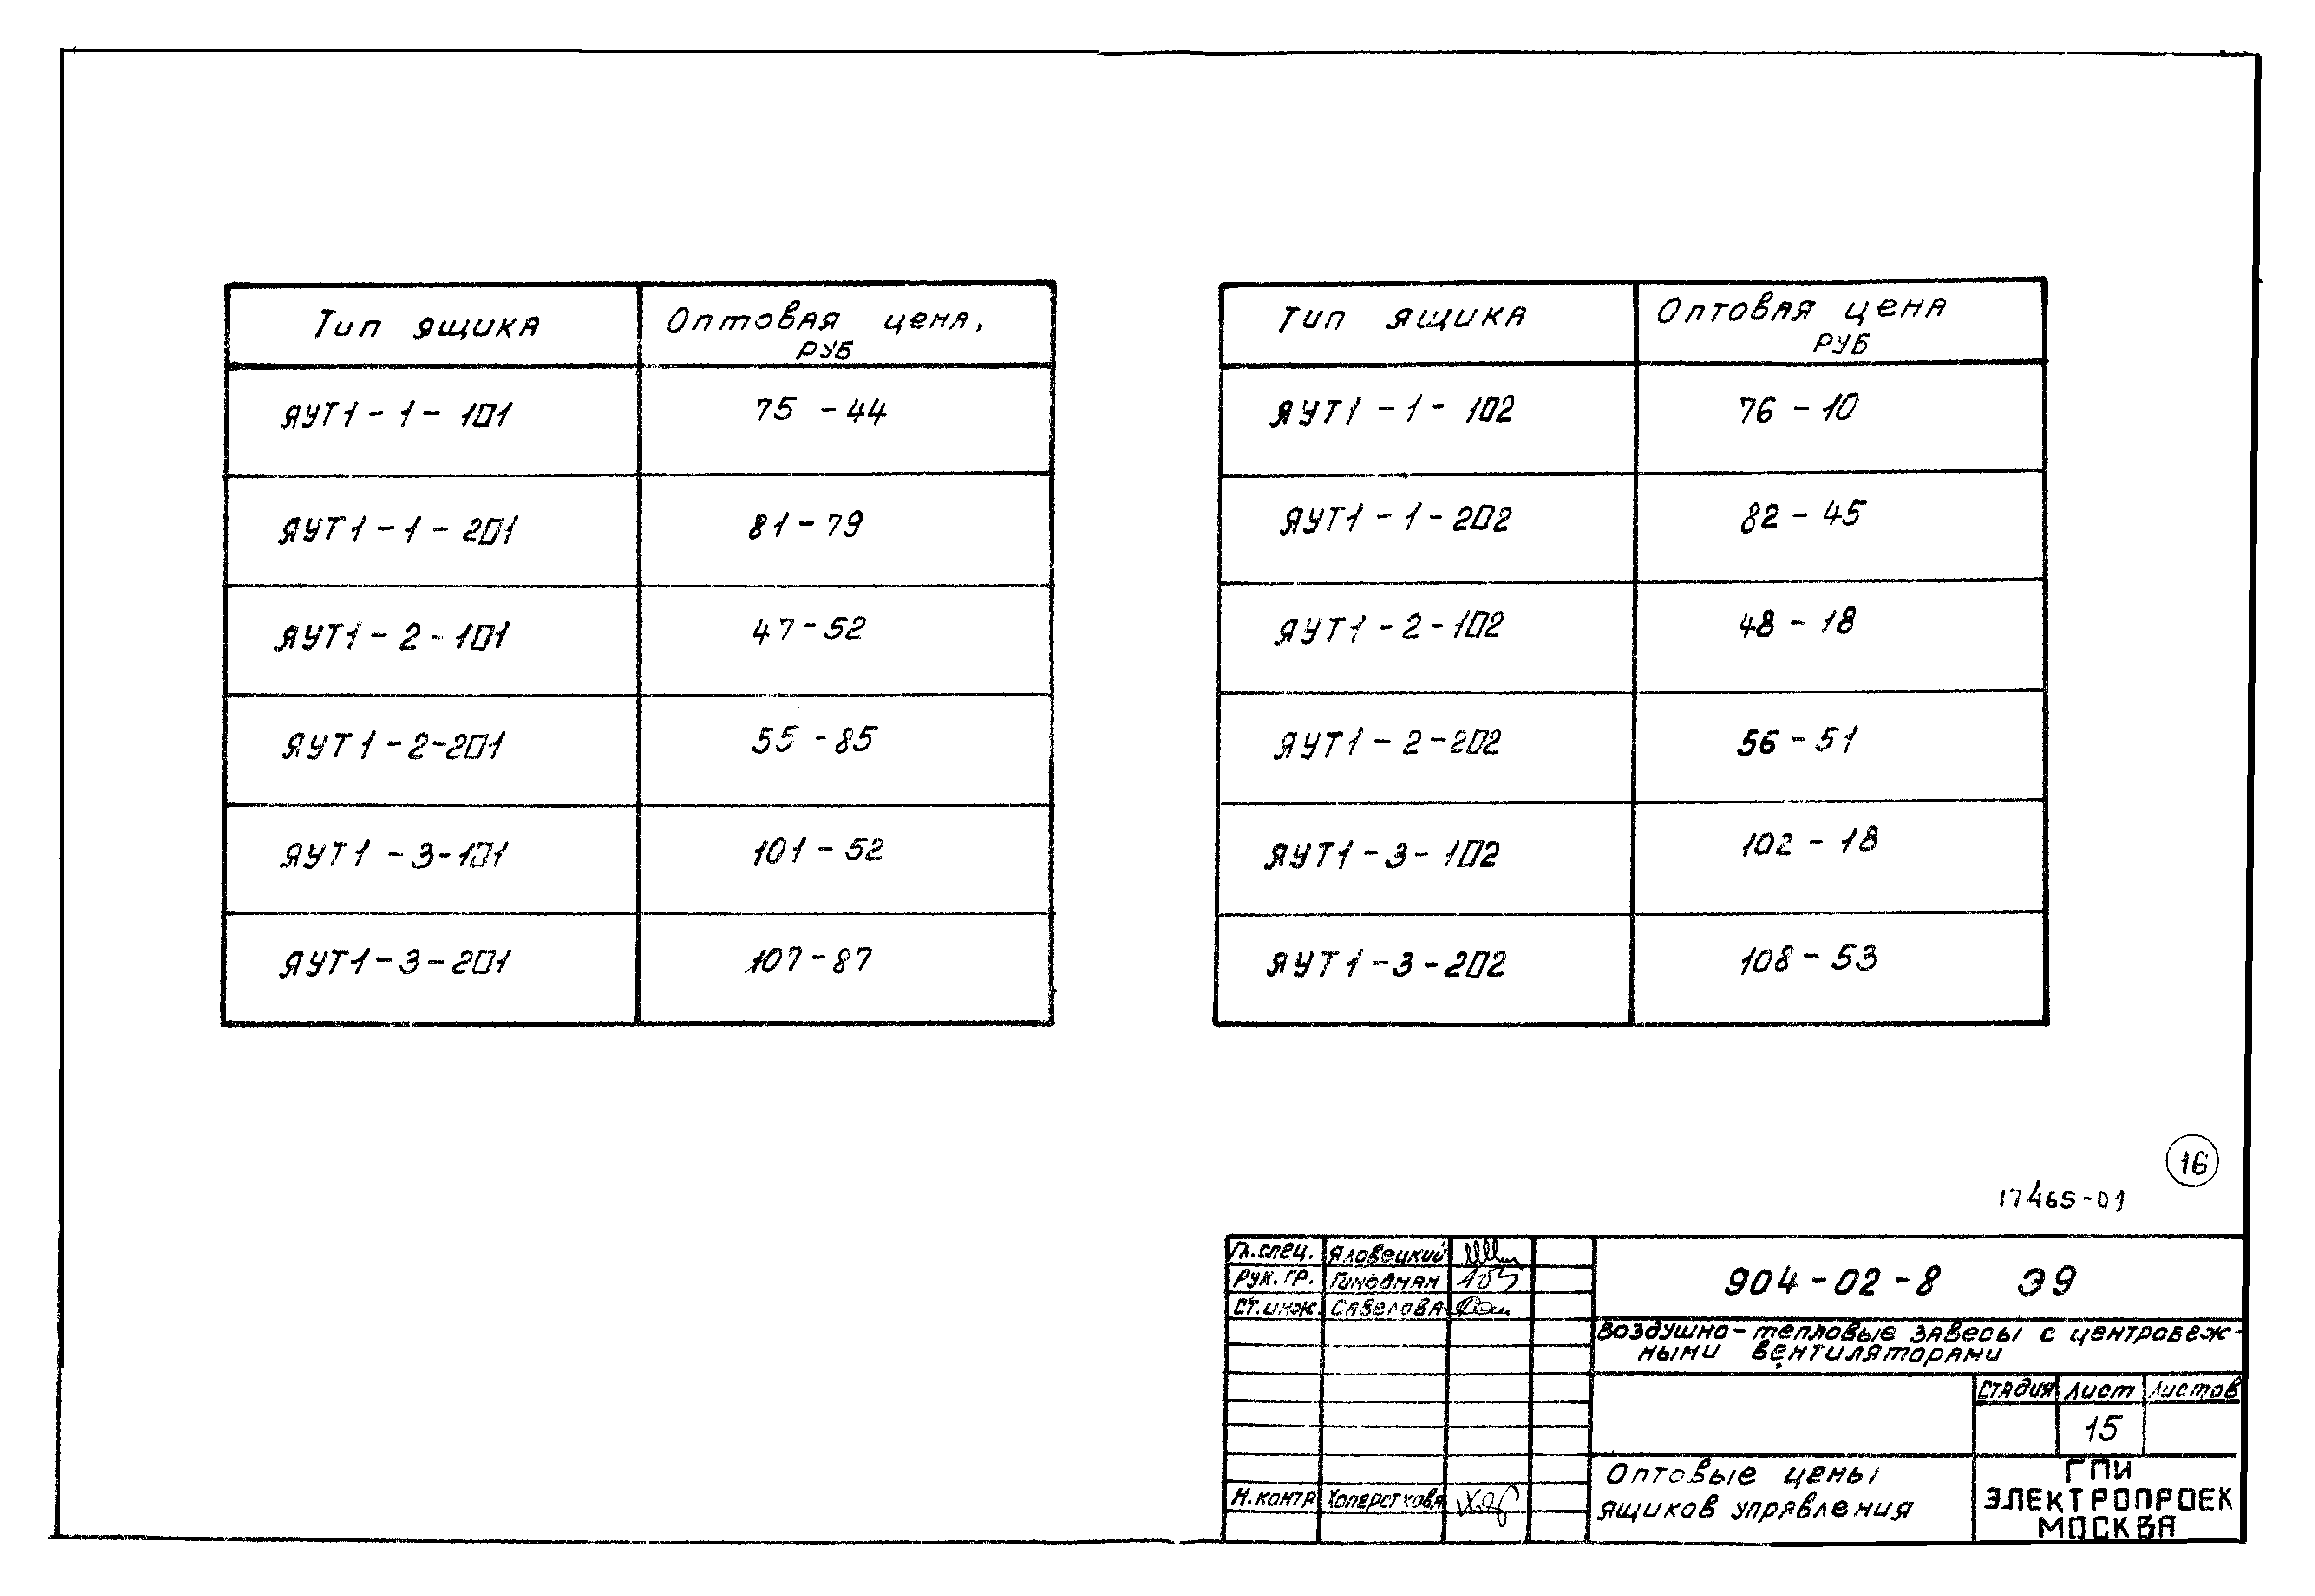 Тип ящика Оптовая цена, руб
ЯУТ1-1-101 75-44
ЯУТ1-1-201 81-79
ЯУТ1-2-101 47-52
ЯУТ1-2-201 55-85
ЯУТ1-3-101 101-52
ЯУТ1-3-201 107-87
Тип ящика Оптовая цена руб
ЯУТ1-1-102 76-10
ЯУТ1-1-202 82-45
ЯУТ1-2-102 48-18
ЯУТ1-2-202 56-51
ЯУТ1-3-102 102-18
ЯУТ1-3-202 108-53
16
17465-01
Гл.спец. Яловецкий
Рук. гр.
Ст.инж. Савелова
Н.контр
904-02-8 Э9
Воздушно-тепловые завесы с центробеж-
ными вентиляторами
Стадия Лист Листов
15
Оптовые цены
ящиков управления
ГПИ
ЭЛЕКТРОПРОЕК
МОСКВА